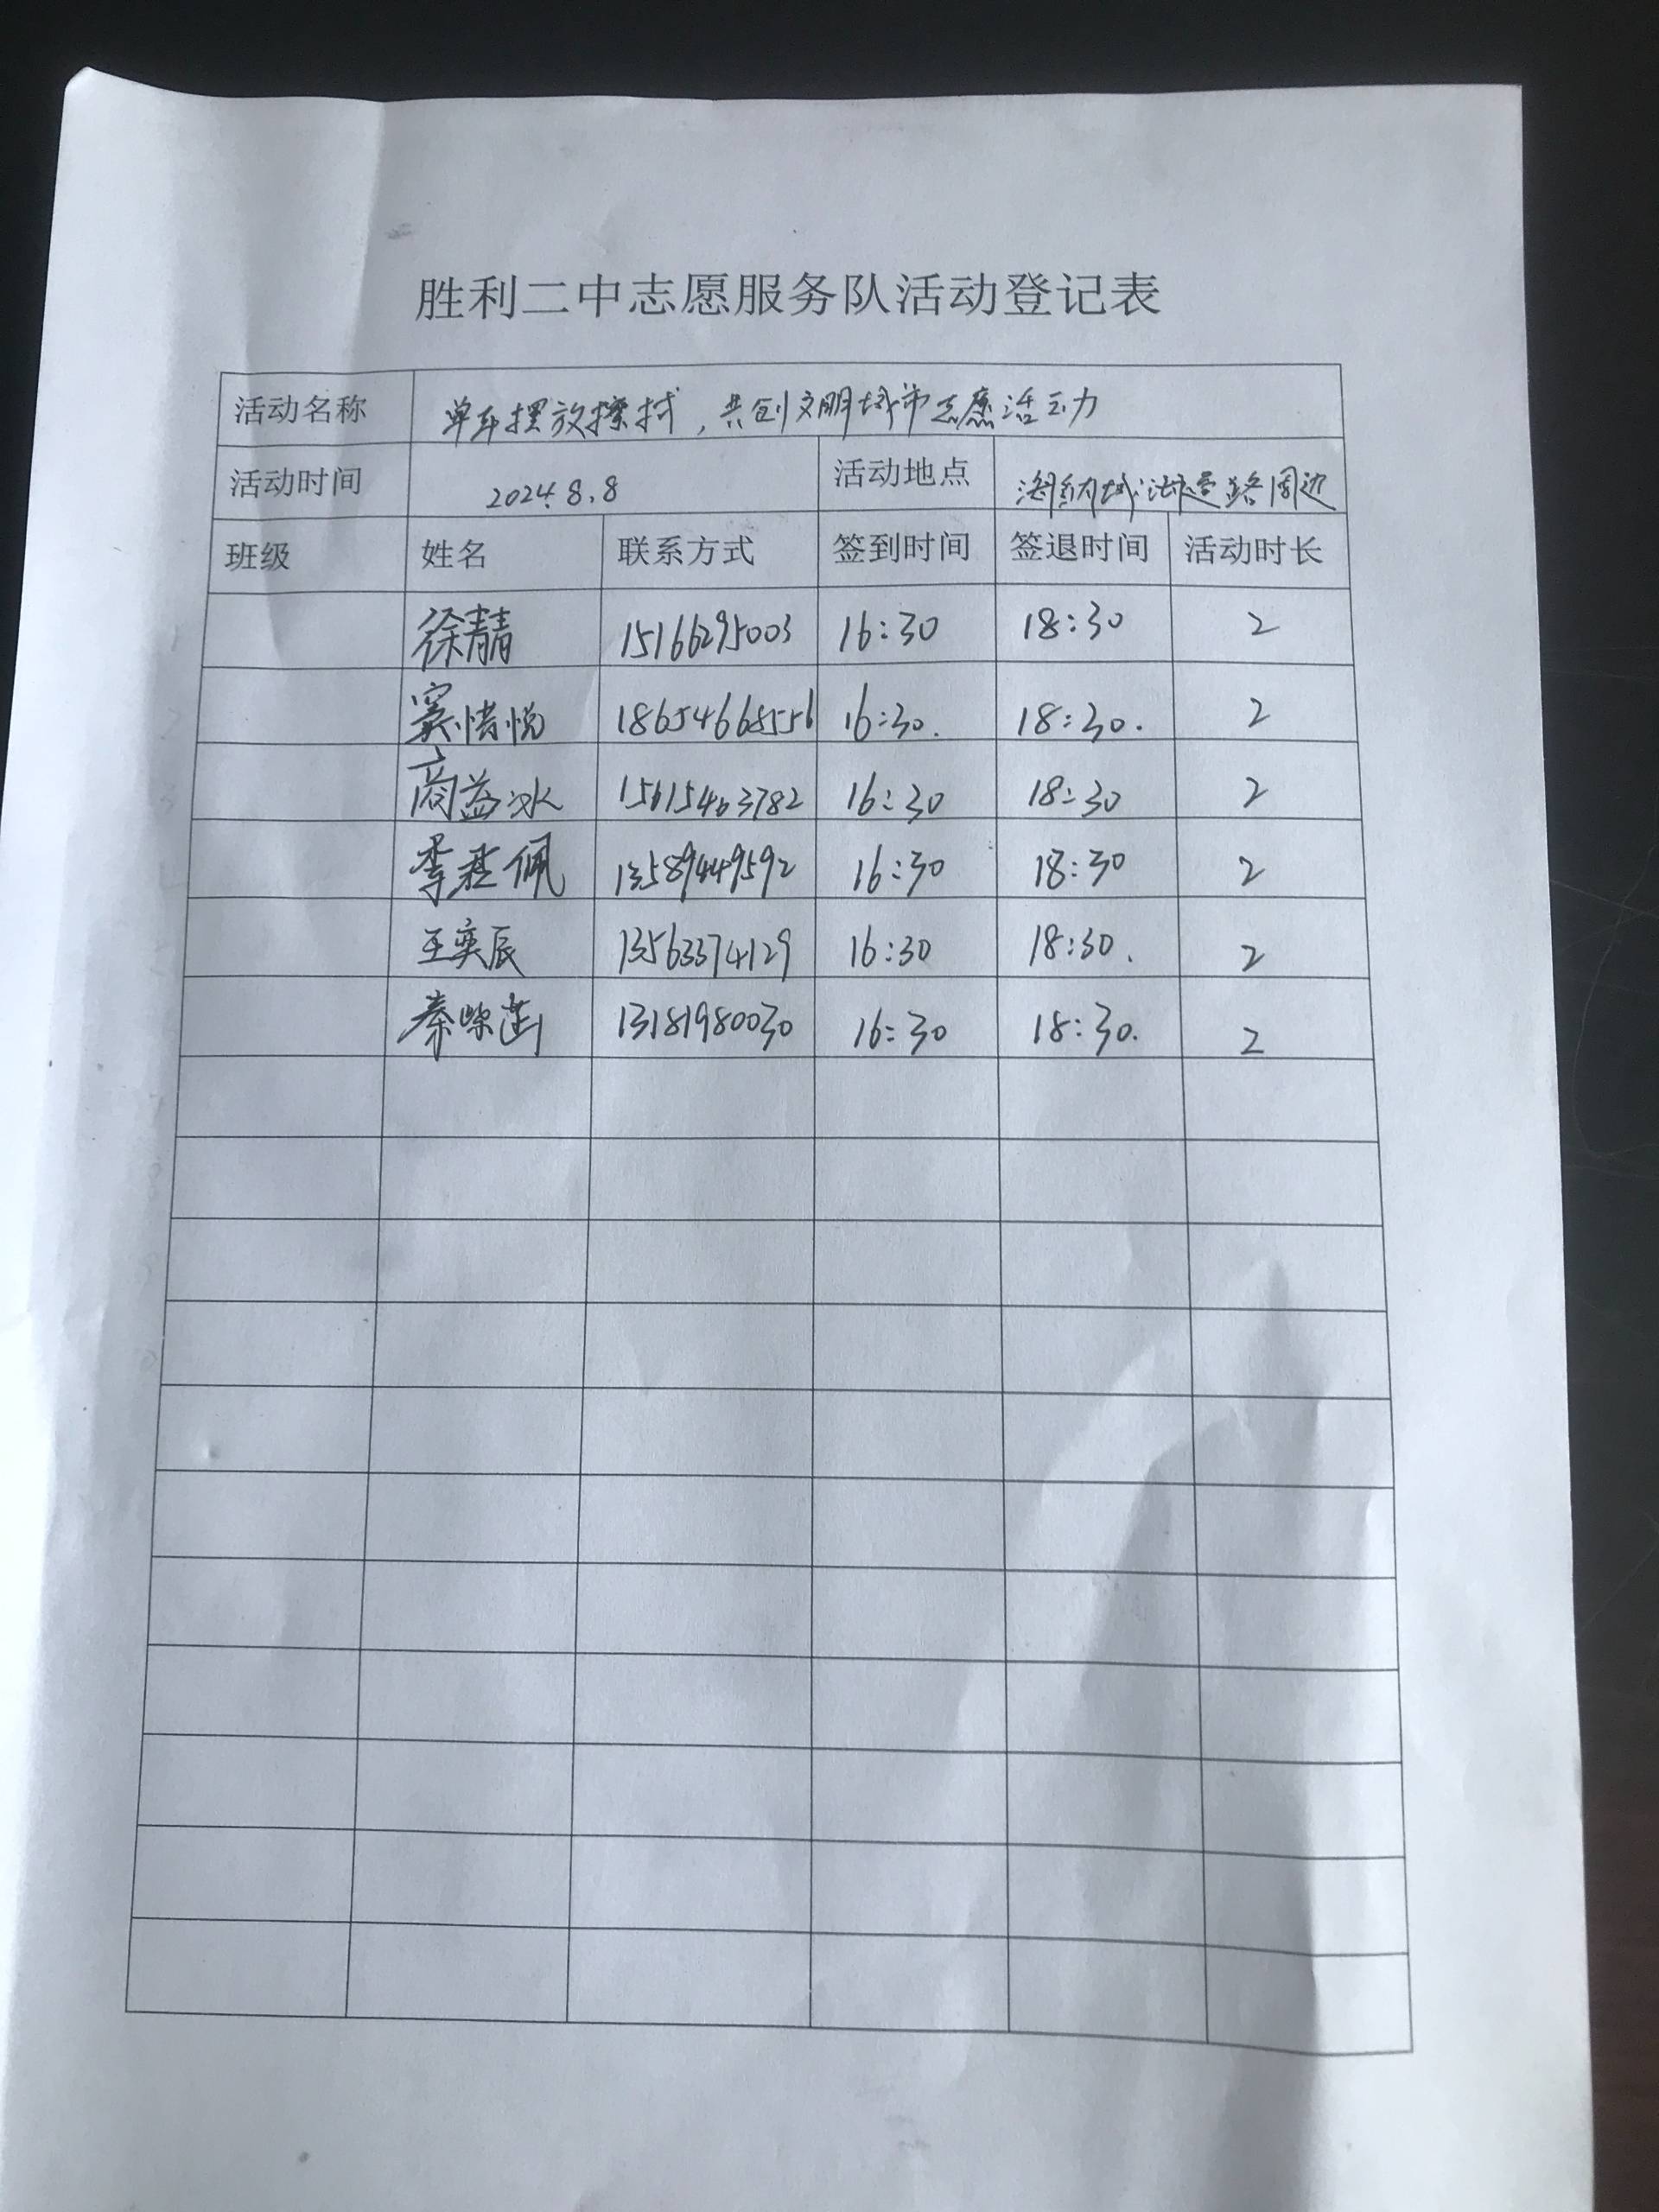 胜利二中志愿服务队活动登记表
活动名称 单车摆放擦拭，共创文明城市志愿活动
活动时间 2024.8.8 活动地点 周边
班级 姓名 联系方式 签到时间 签退时间 活动时长
徐靖 15166295003 16:30 18:30 2
窦惜悦 18654668556 16:30. 18:30. 2
商益冰 15615463782 16:30 18:30 2
李 佩 13589449592 16:30 18:30 2
王奕辰 13563374129 16:30 18:30. 2
秦 13181980030 16:30 18:30. 2